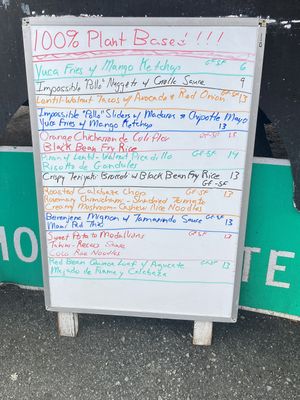 100% Plant Based!!!!
GF-SF
Yuca Fries w/ Mango Ketchup 6
Impossible "Pollo" Nuggets w/ Criolle Sauce 9
Lentil-Walnut Tacos w/ Avocado & Red Onion GF-SF 13
Impossible "Pollo" Sliders w/ Maduros & Chipotle Mayo
Yuca Fries w/ Mango Ketchup 13
Orange Chicharron de Coliflor GF-SF 13
Black Bean Fry Rice
Pinon w/ Lentil-Walnut Picadillo GF-SF 14
Risotto de Gandules
Crispy Teriyaki Broccoli w/ Black Bean Fry Rice 13
GF-SF
Roasted Calabaza Chop GF-SF 13
Rosemary Chimichurri - Sundried Tomato
Creamy Mushroom Cashew Rice Noodles
Berenjena Mignon w/ Tamarindo Sauce GF-SF 13
Maui
Sweet Potato Medallions GF-SF 13
Tahini- Sauce
Coco Rice Noodles
Red Bean Quinoa Loaf w/ Aguacate GF-SF 13
Mojado de Ñame y Calabaza
MO
TE